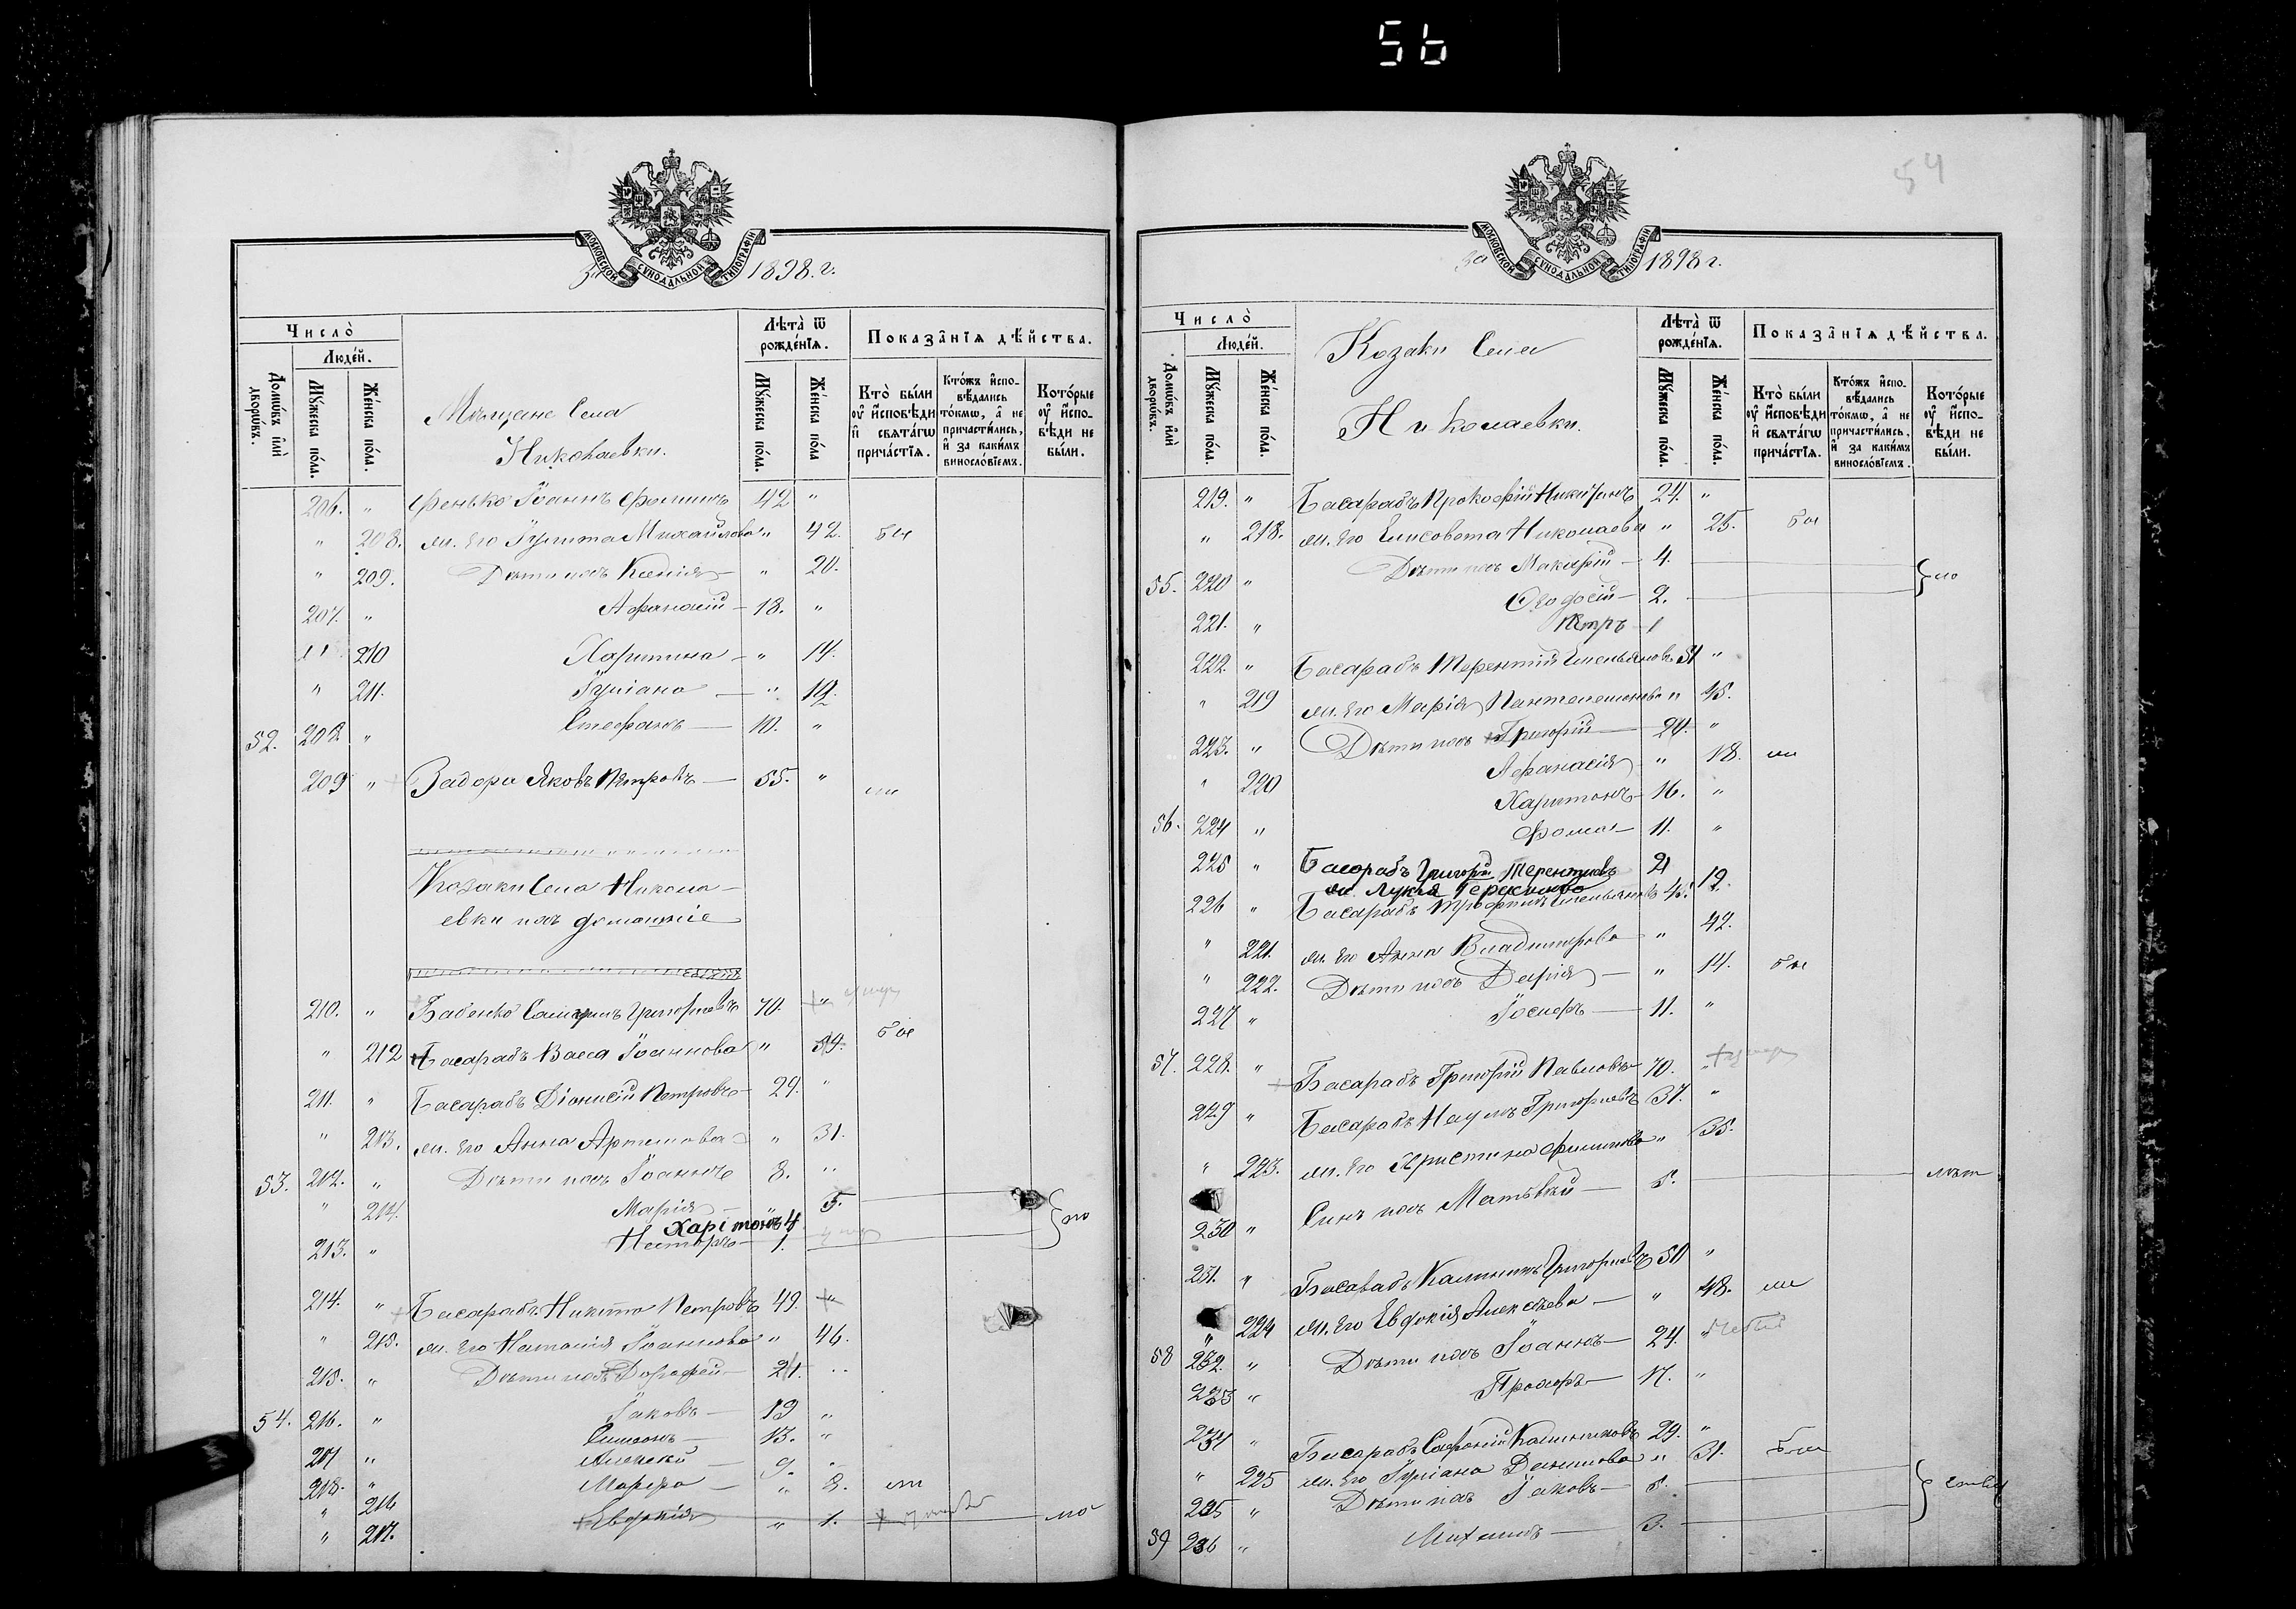 56
54
МОСКОВСКОЙ СѴНОДАЛЬНОЙ ТИПОГРАФІИ
За 1898. г.
Число̀
Люде́й.
Домѡ́въ и҆лѝ дворѡ́въ.
Мꙋ́жеска по́ла.
Же́нска по́ла.
Мѣщане Села
Николаевки.
Лѣ́та ѿ рожде́нїѧ.
Мꙋ́жеска по́ла.
Же́нска по́ла
Показа̑нїѧ дѣ́йства.
Кто̀ бы́ли оу҆ и҆сповѣ́ди и҆ свѧта́гѡ прича́стїѧ.
Кто́жъ и҆сповѣ́дались то́кмѡ, а҆ не причасти́лись, и҆ за каки́мъ виносло́вїемъ.
Кото́рые оу҆ и҆сповѣ́ди не бы́ли.
206. " Фенько Іоаннъ Фоминъ 42 "
" 208. ж. его Іулита Михайлова " 42. бы
" 209. Дѣти ихъ Ксенія " 20.
207. " Афанасій 18. "
" 210 Харитина " 14.
" 211. Іуліана " 12.
52. 208. " Стефанъ 10. "
209 " Задора Яковъ Петровъ 55. " ли
Козаки Села Никола-
евки ихъ домашніе
210. " Бабенко Сампсонъ Григорьевъ 70. + " умер
" 212 Басарабъ Васса Іоаннова " 59. бы
211. " Басарабъ Діонисій Петровъ 29. "
" 213. ж. его Анна Артемова " 31.
53. 212. " Дѣти ихъ Іоаннъ 8. "
" 214. Марія " 5.
Харітонъ 4
213. " Несторъ 1.
214. " Басарабъ Никита Петровъ 49. + "
" 215. ж. его Наталія Іоаннова " 46.
215. " Дѣти ихъ Дорофей 21. "
54. 216. " Іаковъ 19 "
Симеонъ 13. "
217 " Алексѣй 9. "
218. " Марфа " 8. ли
" 216 Евдокія " 1. +
" 217.
За 1898 г.
МОСКОВСКОЙ СѴНОДАЛЬНОЙ ТИПОГРАФІИ
Число̀
Люде́й.
Домѡ́въ и҆лѝ дворѡ́въ.
Мꙋ́жеска по́ла.
Же́нска по́ла.
Козаки Села
Николаевки.
Лѣ́та ѿ рожде́нїѧ.
Мꙋ́жеска по́ла.
Же́нска по́ла.
Показа̑нїѧ дѣ́йства.
Кто̀ бы́ли оу҆ и҆сповѣ́ди и҆ свѧта́гѡ прича́стїѧ.
Кто́жъ и҆сповѣ́дались то́кмѡ, а҆ не причасти́лись, и҆ за каки́мъ виносло́вїемъ.
Кото́рые оу҆ и҆сповѣ́ди не бы́ли.
219. " Басарабъ Прокофій Никитинъ 24. "
" 218. ж. его Елисовета Николаева " 25. бы
Дѣти ихъ Макарій 4.
55. 220 " Ѳеодосій 2.
221. " Петръ 1
222. " Басарабъ Терентій Емельяновъ 51 "
" 219 ж. его Марія Пантелеимонова " 45.
223. " Дѣти ихъ Григорій 20. "
" 220 Афанасія " 18. ли
Харитонъ 16. "
56. 224 " Фома 11. "
225 " Басарабъ Григорій Терентіевъ 21
ж. Лукія 19.
226 " Басарабъ Трофимъ Емельяновъ 45.
" 221. ж. его Анна Владимирова " 42.
" 222. Дѣти ихъ Дарія " 14. бы
227 " Іосифъ 11. "
57. 228. " Басарабъ Григорій Павловъ 70. " + умер
229 " Басарабъ Наумъ Григорьевъ 37. "
" 223. ж. его Христина Филипова " 35.
230 " Сынъ ихъ Матѳѣй 5. лѣт
231. " Басарабъ Калиникъ Григорьевъ 50 "
" 224 ж. его Евдокія Алексѣева " 48. ли
58 232. " Дѣти ихъ Іоаннъ 24. "
233 " Прохоръ 17. "
234 " Басарабъ Софроній Калиниковъ 29. "
" 225 ж. его Іуліана Данилова " 31. бы
235 " Дѣти ихъ Іаковъ 5.
59 236 " Михаилъ 3.